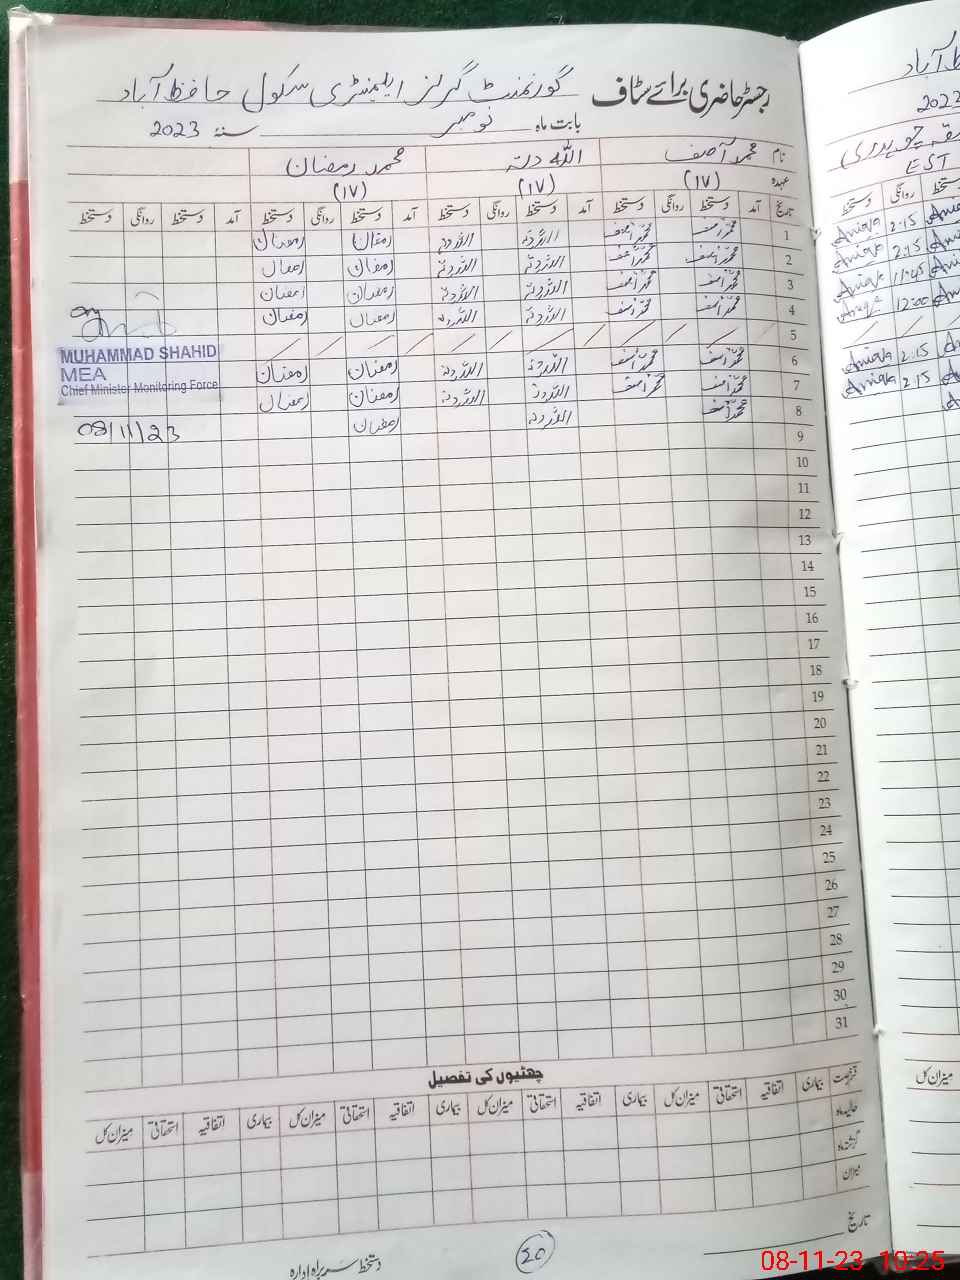 رجسٹر حاضری برائے سٹاف گورنمنٹ گرلز ایلیمنٹری سکول حافظ آباد
بابت ماہ نومبر سنۂ 2023
نام محمد آصف اللہ دتہ محمد رمضان
عہدہ (۱۷) (۱۷) (۱۷)
تاریخ آمد دستخط روانگی دستخط آمد دستخط روانگی دستخط آمد دستخط روانگی دستخط آمد دستخط روانگی دستخط
1 محمد آصف محمد آصف اللہ دتہ اللہ دتہ رمضان رمضان
2 محمد آصف محمد آصف اللہ دتہ اللہ دتہ رمضان رمضان
3 محمد آصف محمد آصف اللہ دتہ اللہ دتہ رمضان رمضان
4 محمد آصف محمد آصف اللہ دتہ اللہ دتہ رمضان رمضان
5
6 محمد آصف محمد آصف اللہ دتہ اللہ دتہ رمضان رمضان
7 محمد آصف محمد آصف اللہ دتہ اللہ دتہ رمضان رمضان
8 محمد آصف اللہ دتہ رمضان
9
10
11
12
13
14
15
16
17
18
19
20
21
22
23
24
25
26
27
28
29
30
31
MUHAMMAD SHAHID
MEA
Chief Minister Monitoring Force
08/11/23
چھٹیوں کی تفصیل
قسم رخصت بیماری اتفاقیہ استحقاقی میزان کل بیماری اتفاقیہ استحقاقی میزان کل بیماری اتفاقیہ استحقاقی میزان کل بیماری اتفاقیہ استحقاقی میزان کل
حالیہ ماہ
گزشتہ ماہ
میزان
تاریخ
دستخط سربراہ ادارہ
آباد
2023
چوہدری
EST
دستخط روانگی دستخط
Aniqa 2:15 Aniqa
Aniqa 2:15 Aniqa
Aniqa 11:45 Aniqa
Aniqa 12:00 Aniqa
Aniqa 2:15
Aniqa 2:15
میزان کل
08-11-23 10:25